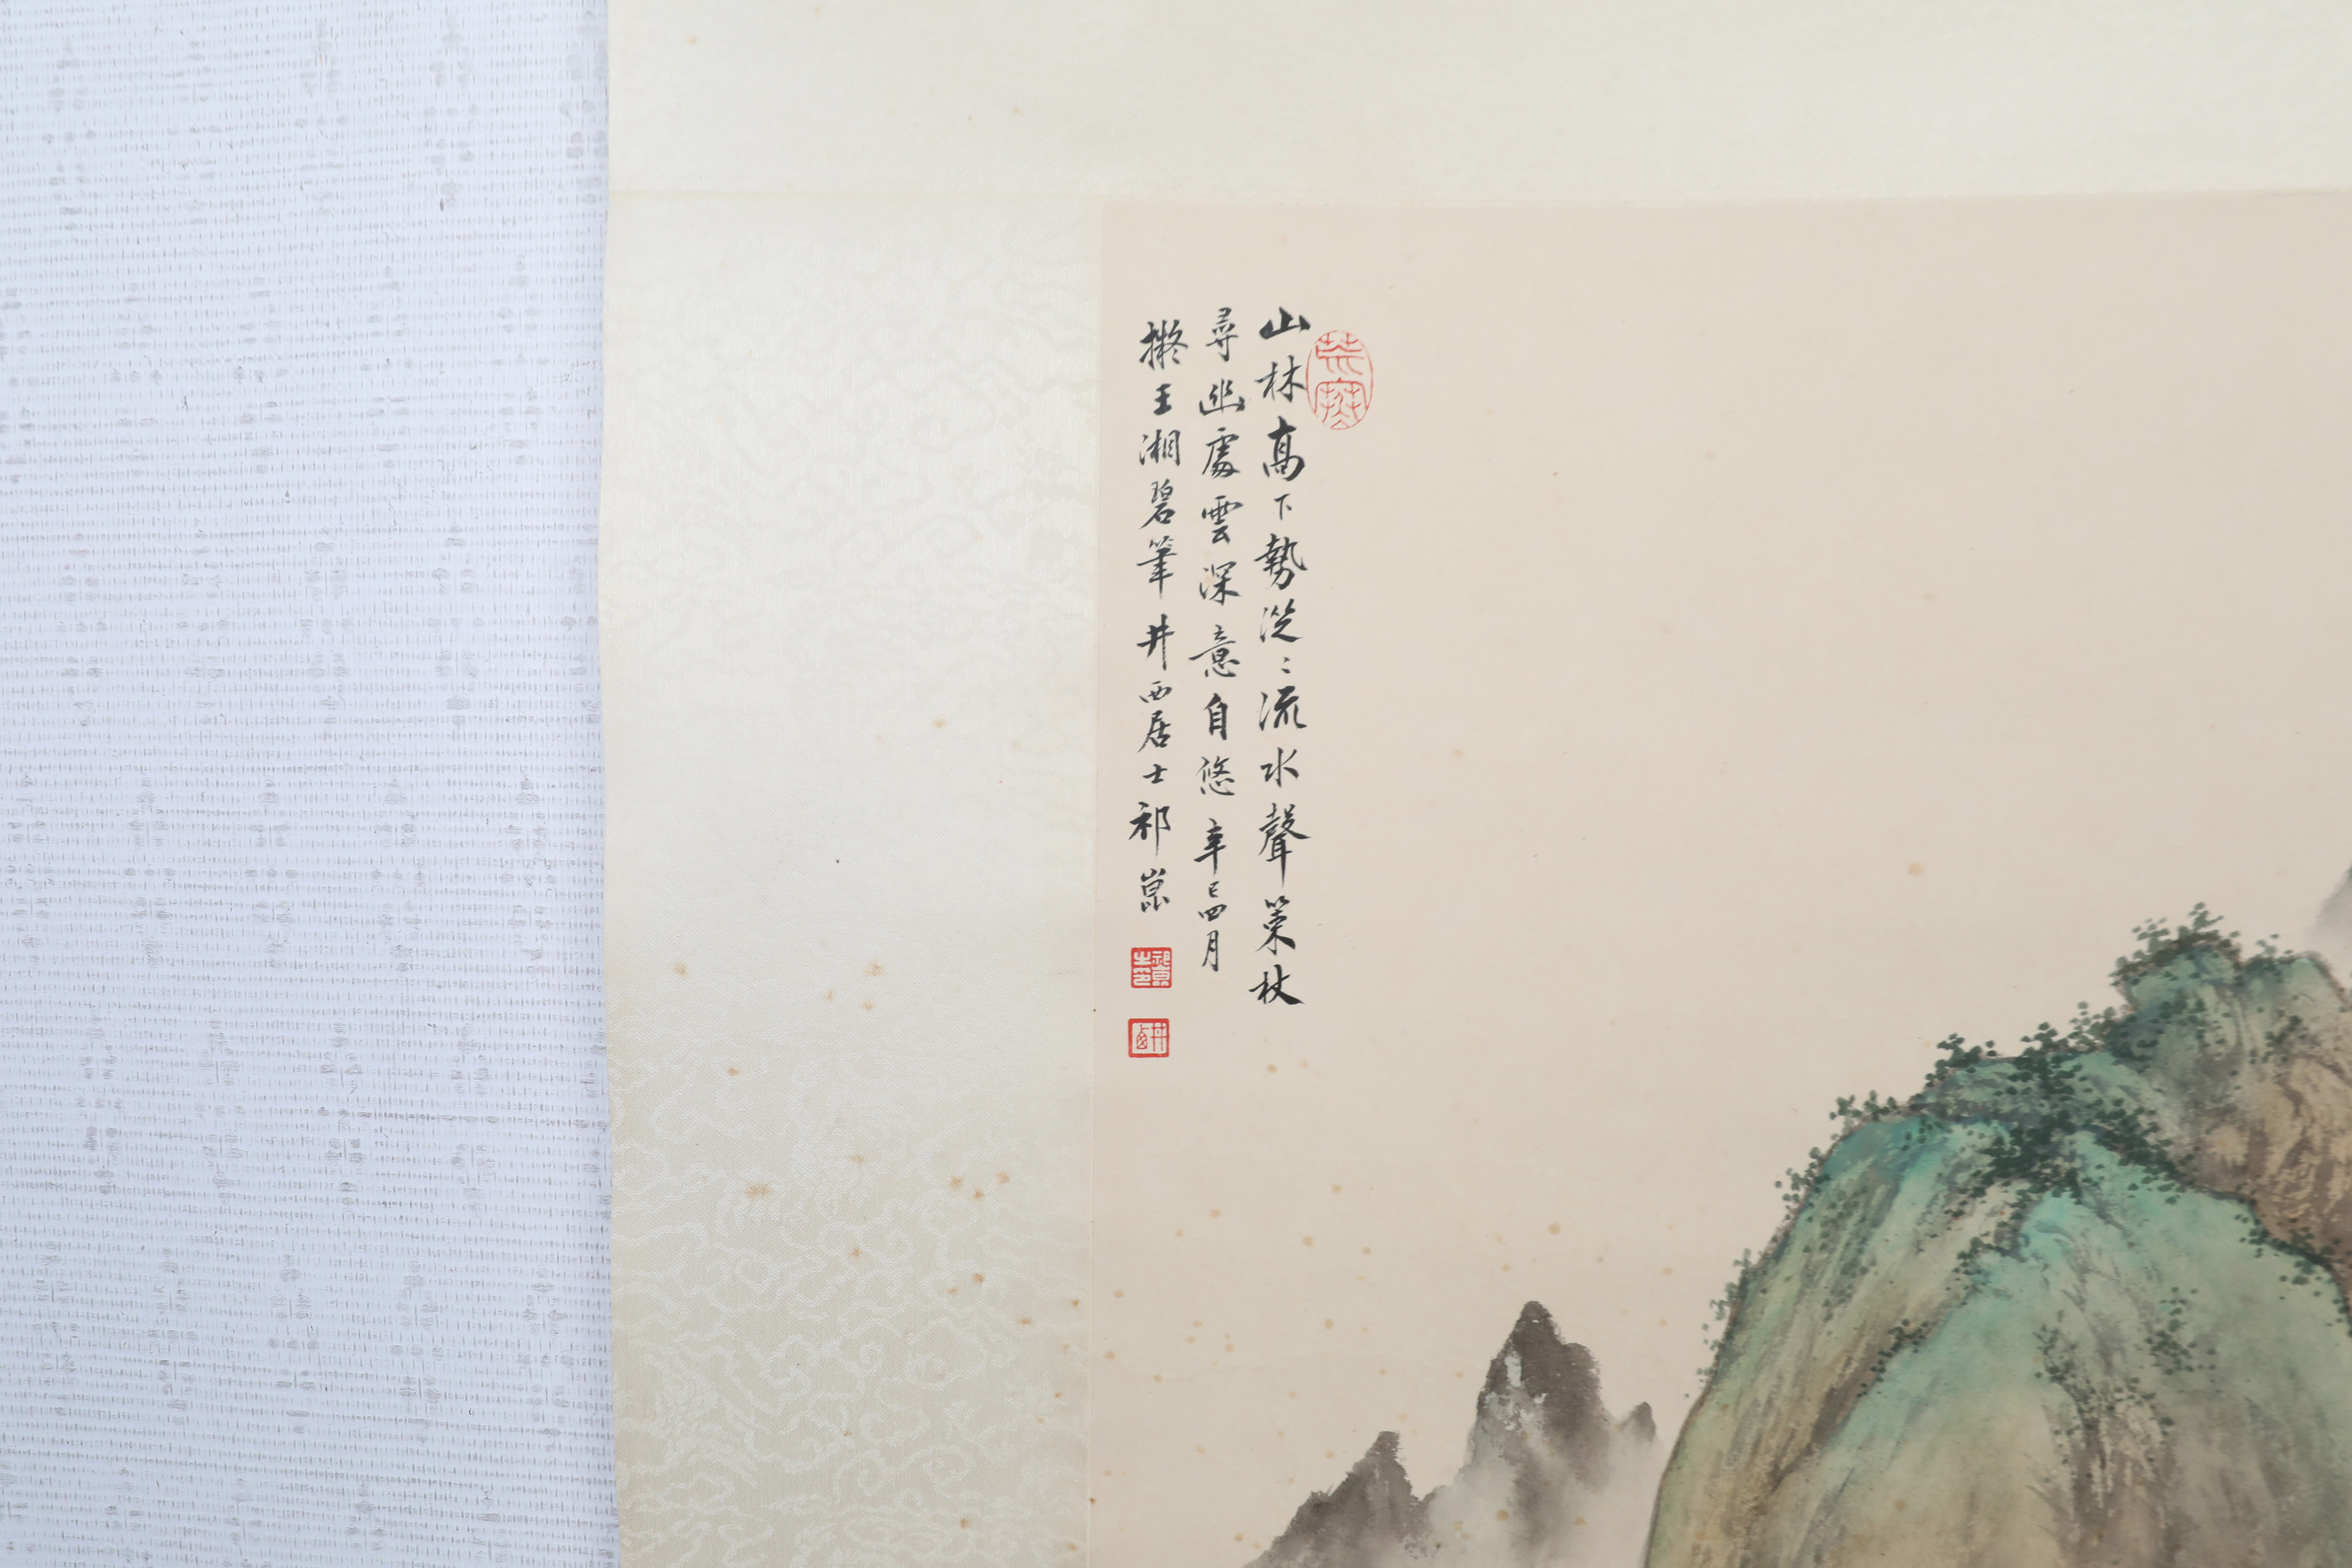 山林高下勢淙〻流水聲策杖
尋幽處雲深意自悠辛巳四月
擬王湘碧筆井西居士祁崑
祁崑之印
井西